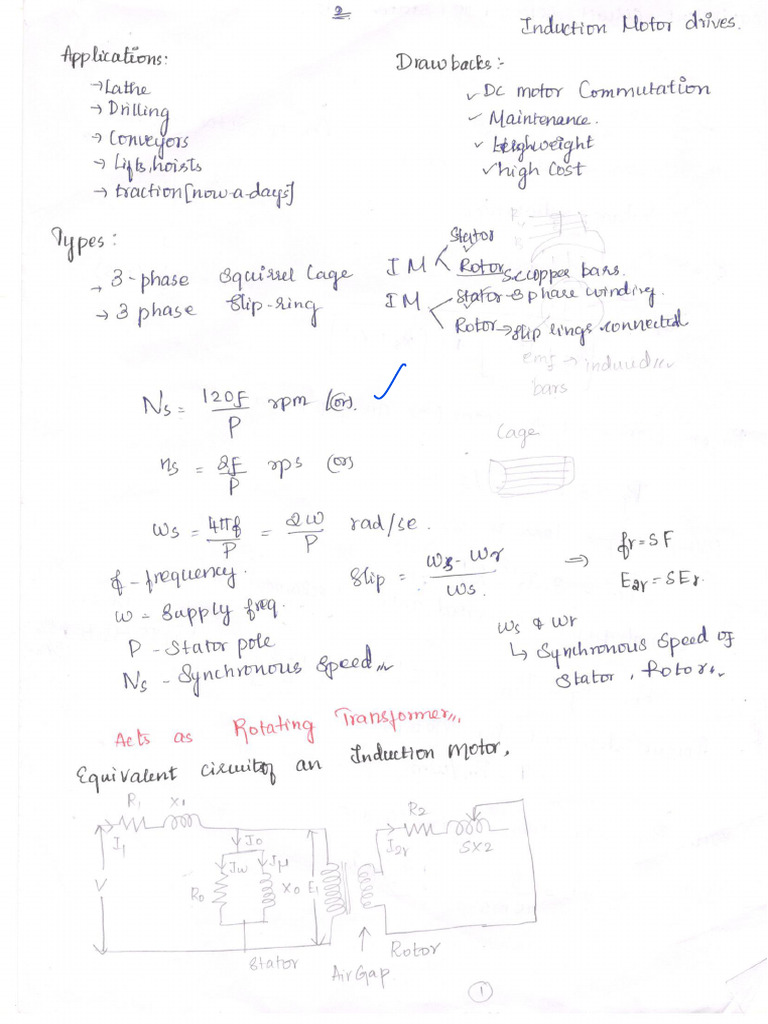 2
Induction Motor drives.
Applications:
→Lathe
→Drilling
→Conveyors
→Lifts, hoists
→traction[now-a-days]
Drawbacks:-
✓ DC motor Commutation
✓ Maintenance.
✓ weight
✓ high Cost
Types:
→ 3-phase Squirrel Cage
→ 3 phase Slip-ring
IM
Stator
Rotor Sc copper bars.
IM
Stator-3 phase winding.
Rotor→slip rings connected
emf → induced
bars
Cage
Ns = 120f/P rpm (or). ✓
ns = 2f/P rps (or)
ws = 4πf/P = 2w/P rad/se.
f - frequency.
w - Supply freq.
P - Stator pole
Ns - Synchronous Speed
Slip = ws - wr/ws. ⇒ fr = SF
E2r = SEr.
ws & wr
↳ Synchronous Speed of
Stator, Rotor
Acts as Rotating Transformer
Equivalent circuit of an Induction motor,
R1 X1
I1
V
I0
Iw Iμ
R0 X0 E1
R2
I2r SX2
Stator
Air Gap
Rotor
1